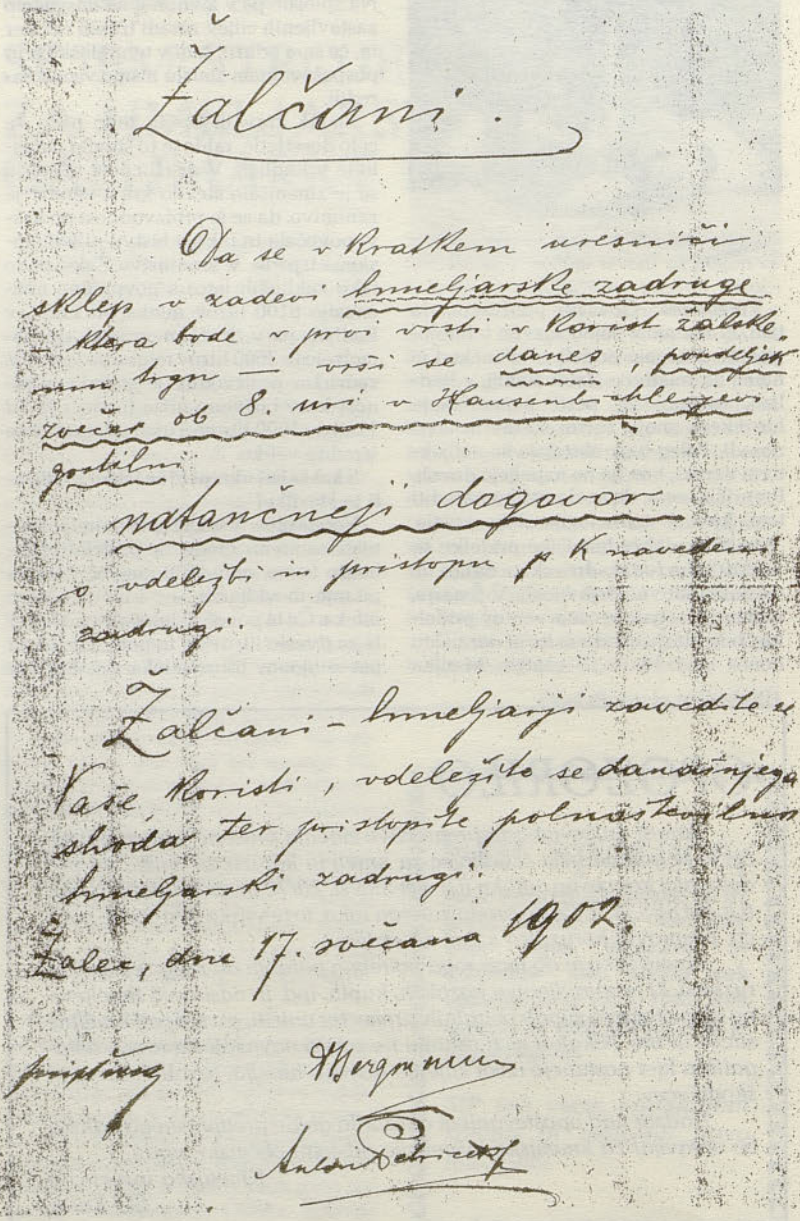 Žalčani.
Da se v kratkem uresniči
sklep v zadevi hmeljarske zadruge
– ktera bode v prvi vrsti v korist žalske-
mu trgu – vrši se danes, pondeljek
zvečer ob 8. uri v Hausenbichlerjevi
gostilni
natančneji dogovor
o vdeležbi in pristopu k navedeni
zadrugi.
Žalčani – hmeljarji zavedite se
Vaše koristi, vdeležite se današnjega
shoda ter pristopite polnoštevilno
hmeljarski zadrugi.
Žalec, dne 17. svečana 1902.
Bergmann
Anton Petriček